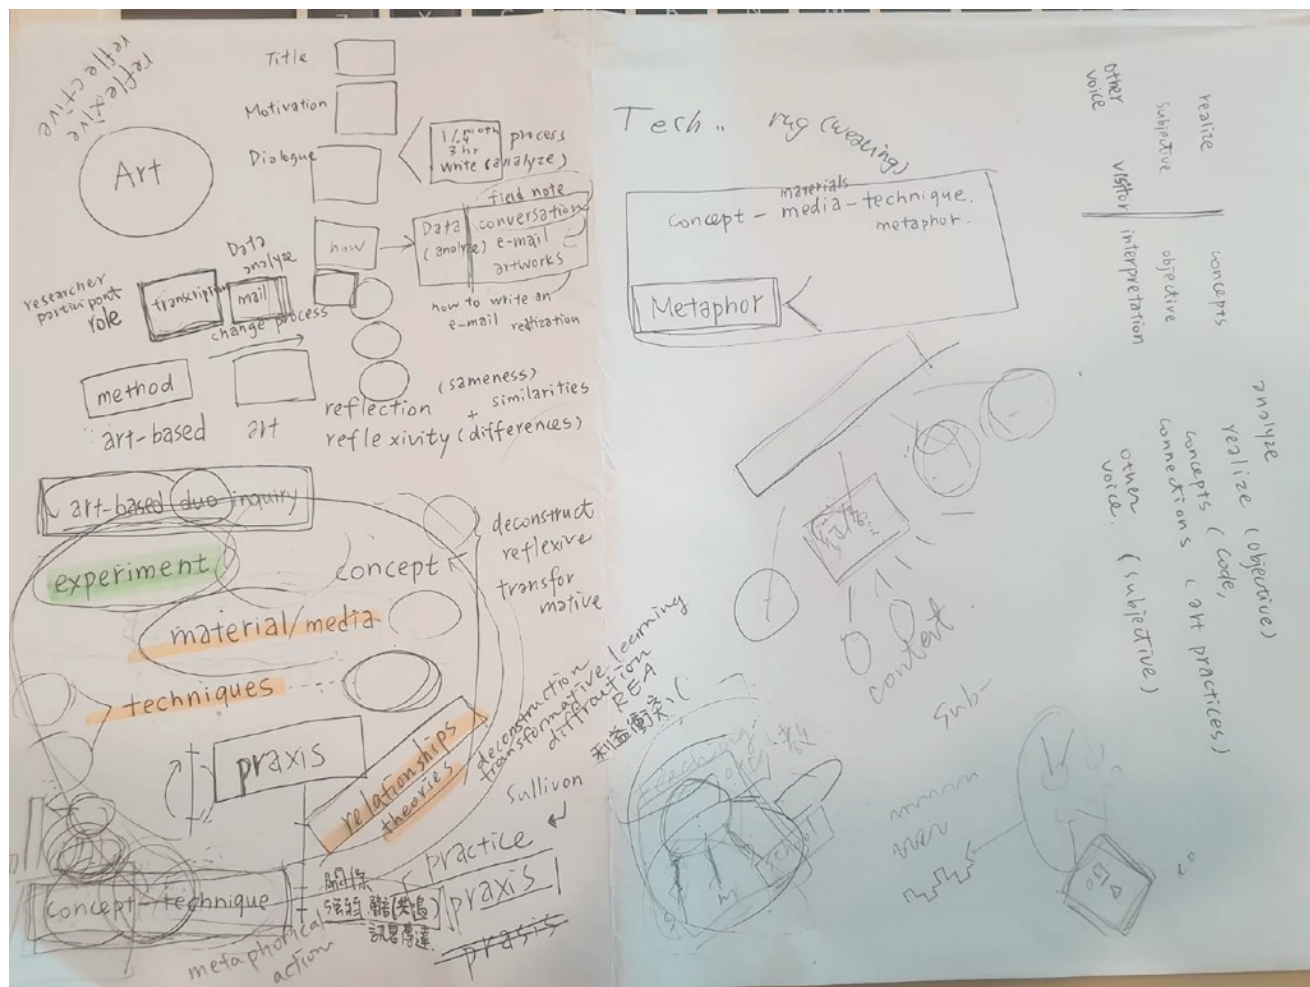 reflective
reflexive
Art
Title
Motivation
Dialogue
3 hr
write (analyze)
process
how
Data
(analyze)
field note
conversation
e-mail
artworks
how to write an
e-mail
researcher
role
Data
analyze
mail
change process
method
art-based
art
reflection
(sameness)
+ similarities
reflexivity (differences)
art-based duo inquiry
experiment
concept
material/media
techniques
praxis
relationships
theories
deconstruct
reflexive
transfor
mative
deconstruction
transformative learning
diffraction
REA
利益衝突
Sullivon
practice
praxis
prasis
concept - technique
metaphorical
action
關係
訊息傳達
Tech..
rug (weaving)
materials
concept - media - technique.
metaphor.
Metaphor
context
sub-
teaching
school
other
voice
visitor
interpretation
subjective
objective
realize
concepts
analyze
realize (objective)
concepts (code,
connections (art practices)
other
voice. (subjective)